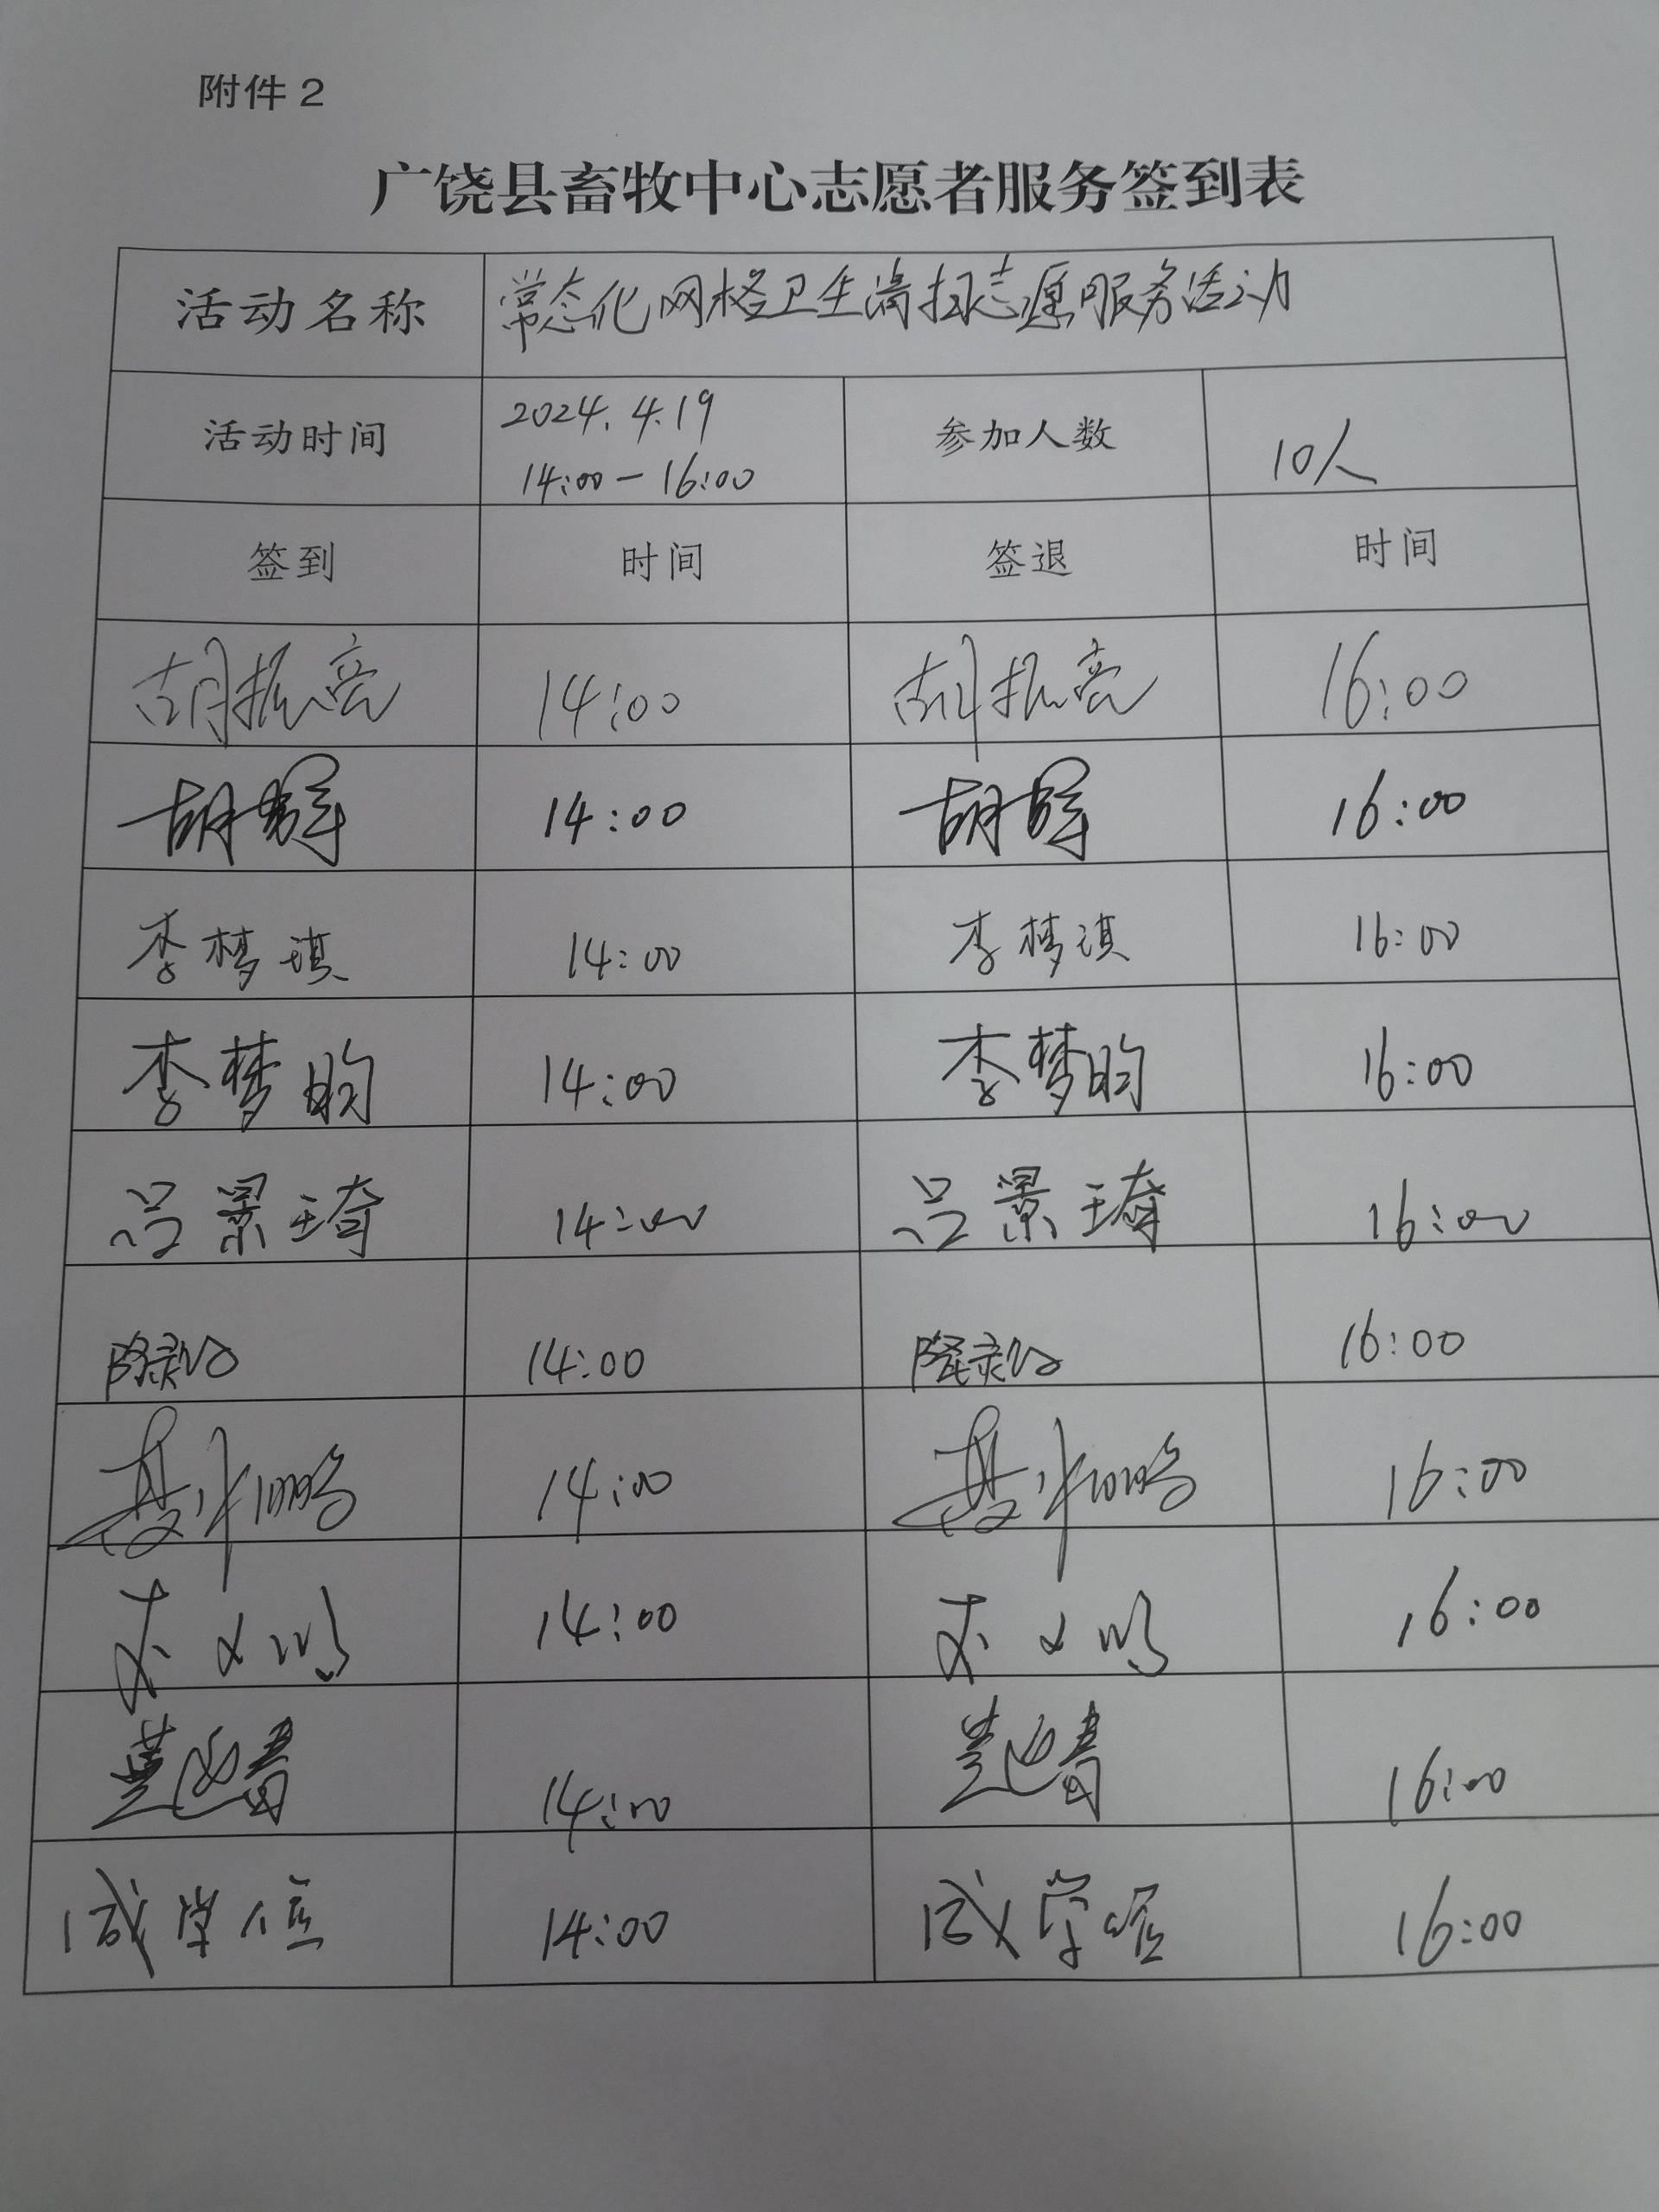 附件2
广饶县畜牧中心志愿者服务签到表
活动名称 常态化网格卫生清扫志愿服务活动
活动时间 2024.4.19 14:00-16:00 参加人数 10人
签到 时间 签退 时间
胡振亮 14:00 胡振亮 16:00
胡晖 14:00 胡晖 16:00
李梦琪 14:00 李梦琪 16:00
李梦昀 14:00 李梦昀 16:00
吕景琦 14:00 吕景琦 16:00
14:00 16:00
14:00 16:00
14:00 16:00
14:00 16:00
14:00 16:00